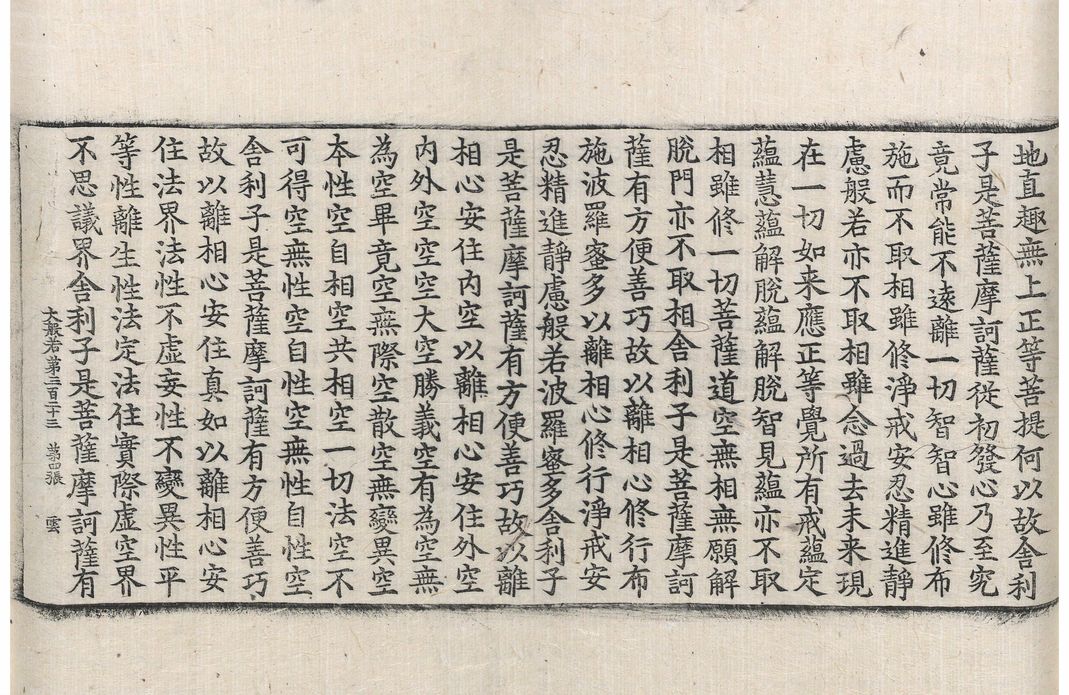 地直趣無上正等菩提何以故舍利
子是菩薩摩訶薩從初發心乃至究
竟常能不遠離一切智智心雖修布
施而不取相雖修淨戒安忍精進靜
慮般若亦不取相雖念過去未来現
在一切如来應正等覺所有戒蘊定
蘊慧蘊解脫蘊解脫智見蘊亦不取
相雖修一切菩薩道空無相無願解
脫門亦不取相舍利子是菩薩摩訶
薩有方便善巧故以離相心修行布
施波羅蜜多以離相心修行淨戒安
忍精進靜慮般若波羅蜜多舍利子
是菩薩摩訶薩有方便善巧故以離
相心安住内空以離相心安住外空
内外空空空大空勝義空有為空無
為空畢竟空無際空散空無變異空
本性空自相空共相空一切法空不
可得空無性空自性空無性自性空
舍利子是菩薩摩訶薩有方便善巧
故以離相心安住真如以離相心安
住法界法性不虛妄性不變異性平
等性離生性法定法住實際虛空界
不思議界舍利子是菩薩摩訶薩有
大般若第三百二十三 第四張 雲